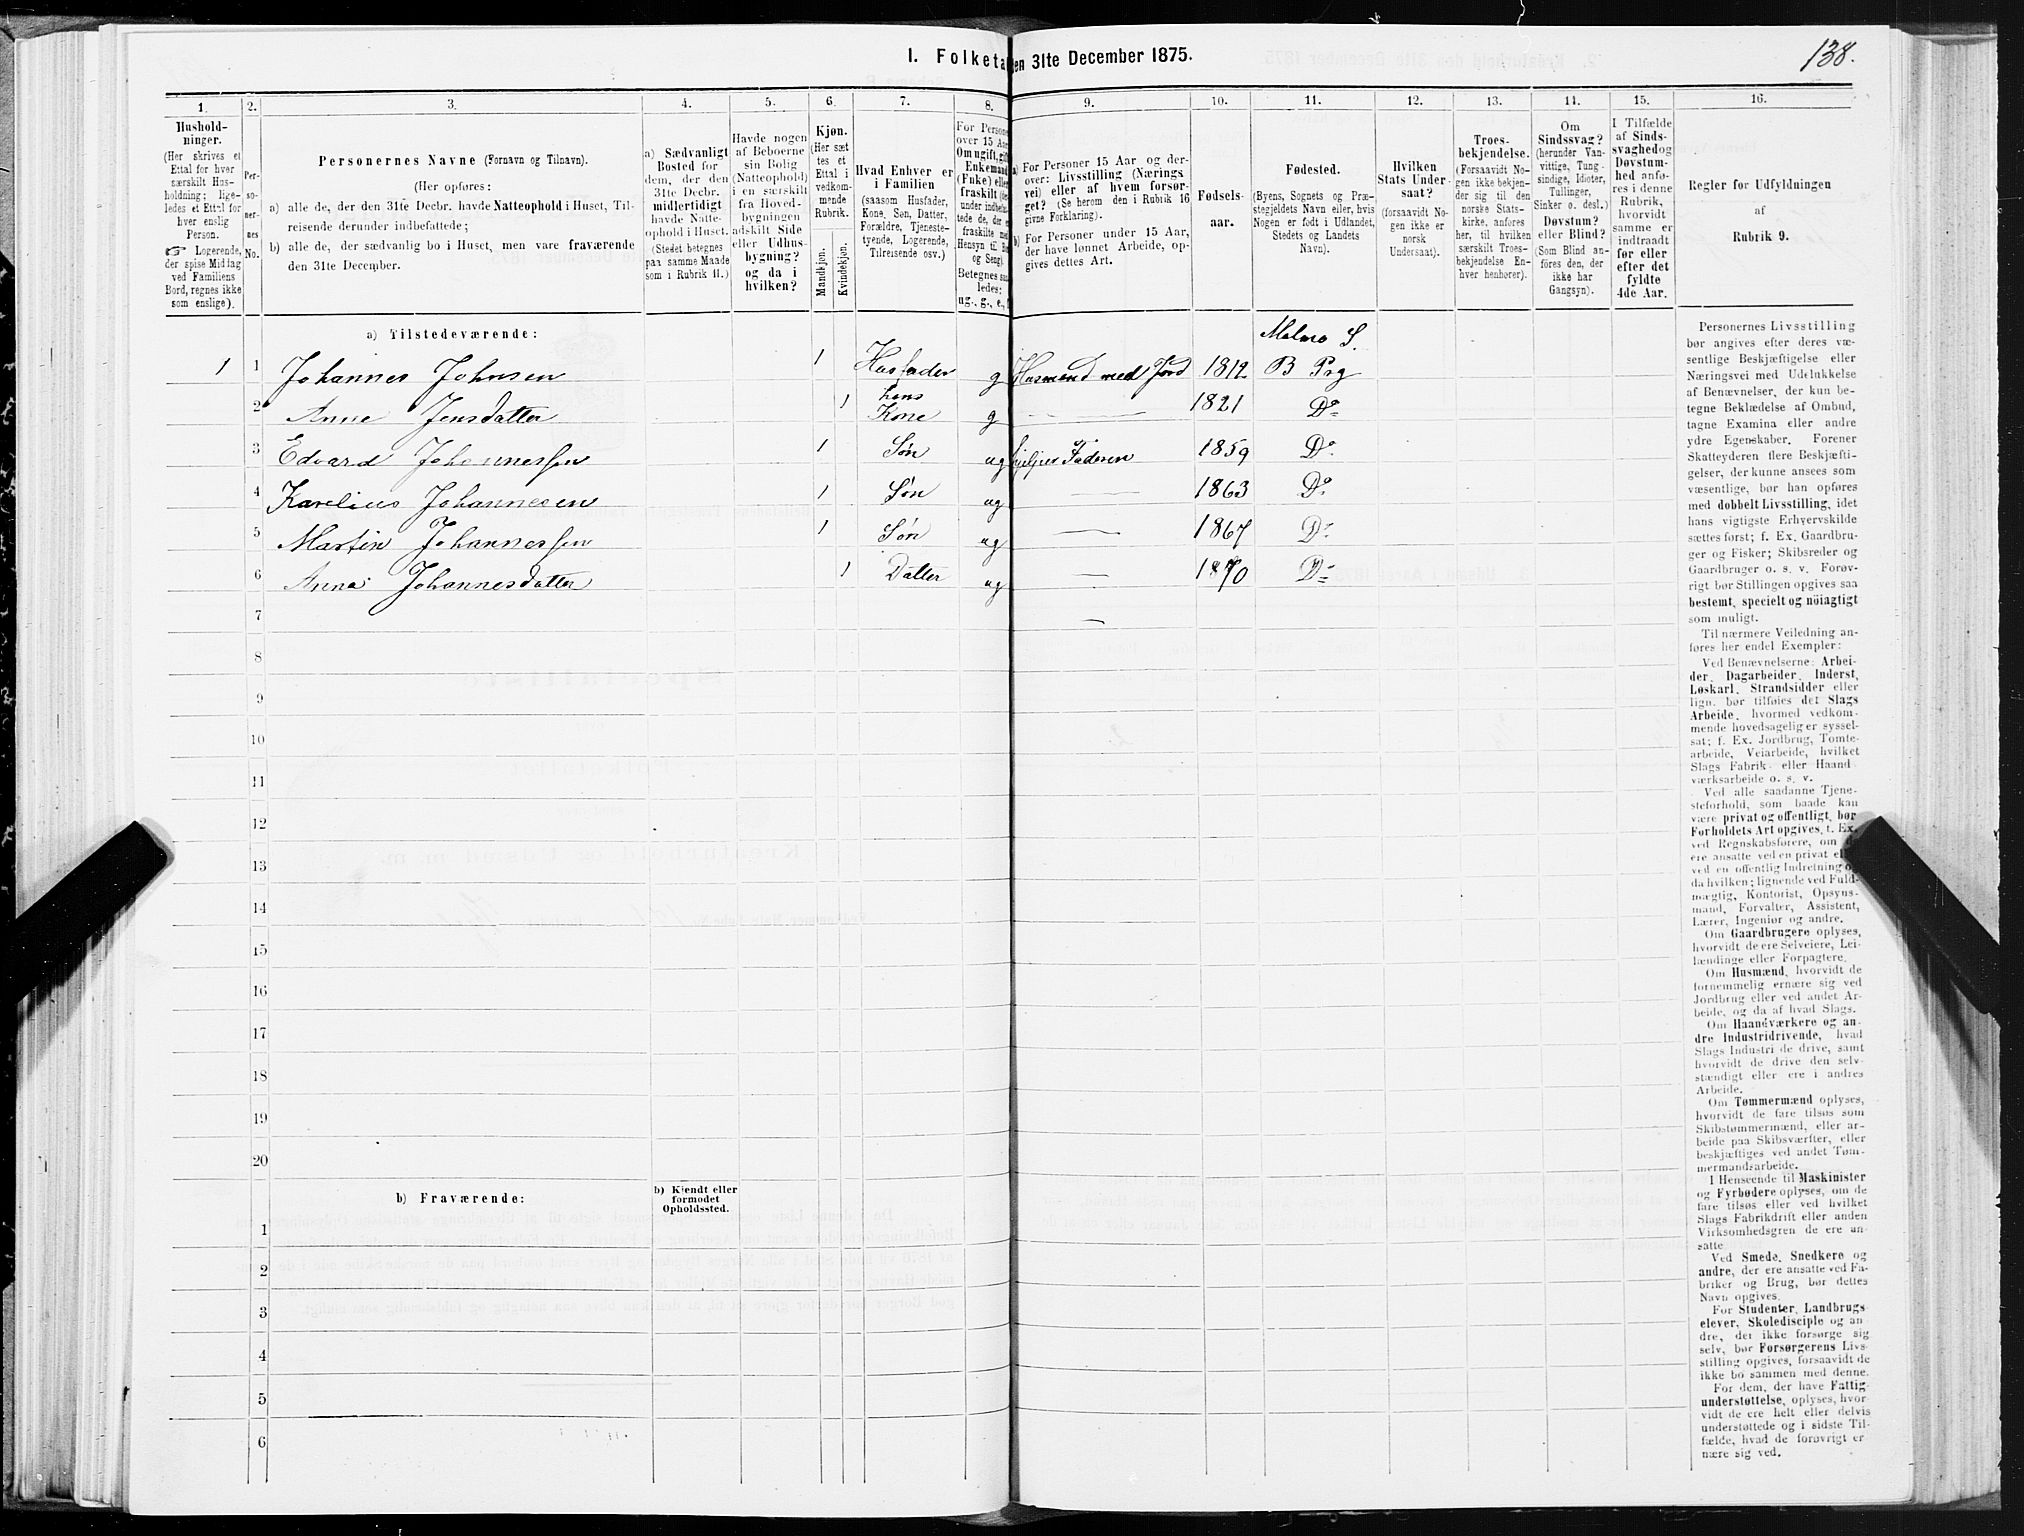 138.
1. Folketa en 31te December 1875.
1. 2. 3. 4. 5. 6. 7. 8. 9. 10. 11. 12. 13. 14. 15. 16.
Hushold-
ninger.
(Her skrives et
Ettal for hver
særskilt Hus-
holdning; lige-
ledes et Ettal for
hver enslig
Person.
☞ Logerende,
der spise Middag
ved Familiens
Bord, regnes ikke
som enslige).
Per-
so-
ner-
nes
No.
Personernes Navne (Fornavn og Tilnavn).
(Her opføres:
a) alle de, der den 31te Decbr. havde Natteophold i Huset, Til-
reisende derunder indbefattede;
b) alle de, der sædvanlig bo i Huset, men vare fraværende
den 31te December.
a) Sædvanligt
Bosted for
dem, der den
31te Decbr.
midlertidigt
havde Natte-
ophold i Huset.
(Stedet betegnes
paa samme Maade
som i Rubrik 11.)
Havde nogen
af Beboerne
sin Bolig
(Natteophold)
i en særskilt
fra Hoved-
bygningen
adskilt Side
eller Udhus-
bygning?
og da i
hvilken?
Kjøn.
(Her sæt
tes et
Ettal i
vedkom-
mende
Rubrik.
Mandkjøn.
Kvindekjøn.
Hvad Enhver er
i Familien
(saasom Husfader,
Kone, Søn, Datter,
Forældre, Tjeneste-
tyende, Logerende,
Tilreisende osv.)
For Persone
over 15 Aa
Om ugift, gift
Enkemand
(Enke) elle
fraskilt (de
under indbefat-
tede de, der er
fraskilte med
Hensyn til Bor
og Seng).
Betegnes saa
ledes:
ug., g., e., f
a) For Personer 15 Aar og der-
over: Livsstilling (Nærings
vei) eller af hvem forsør-
get? (Se herom den i Rubrik 16
givne Forklaring).
b) For Personer under 15 Aar,
der have lønnet Arbeide, op-
gives dettes Art.
Fødsels-
aar.
Fødested.
(Byens, Sognets og Præ-
stegjeldets Navn eller, hvis
Nogen er født i Udlandet,
Stedets og Landets
Navn).
Hvilken
Stats Under-
saat?
(forsaavidt No-
gen ikke er
norsk
Undersaat).
Troes-
bekjendelse.
(Forsaavidt No-
gen ikke bekjen-
der sig til den
norske Stats-
kirke, anføres
her, til hvilken
særskilt Troes-
bekjendelse En-
hver henhører).
Om
Sindssvag?
(herunder Van-
vittige, Tung-
sindige, Idioter,
Tullinger,
Sinker o. desl.)
Døvstum?
eller Blind?
(Som Blind an-
føres den, der
ikke har
Gangsyn).
I Tilfælde
af Sinds-
svaghed og
Døvstum-
hed anfø-
res i denne
Rubrik,
hvorvidt
samme er
indtraadt
før eller
efter det
fyldte
4de Aar.
Regler for Udfyldningen
af
Rubrik 9.
a) Tilstedeværende:
Malmo S.
1 1 Johannes Johnsen 1 Husfader g Husmand med Jord 1812 B Prg
2 Anne Jensdatter 1 hans Kone g — 1821 Do
3 Edvard Johannessen 1 Søn ug hjelper Faderen 1859 Do
4 Karelius Johannesen 1 Søn ug — 1863 Do
5 Martin Johannessen 1 Søn ug — 1867 Do
6 Anna Johannesdatter 1 Datter ug — 1870 Do
7 —
8
9
10
11
12
13
14
15
16
17
18
19
20
b) Fraværende:
b) Kjendt eller
formodet
Opholdssted.
1
2
3
4
5
6
Personernes Livsstilling
bør angives efter deres væ-
sentlige Beskjæftigelse eller
Næringsvei med Udelukkelse
af Benævnelser, der kun be-
tegne Beklædelse af Ombud,
tagne Examina eller andre
ydre Egenskaber. Forener
Skatteyderen flere Beskjæfti-
gelser, der kunne ansees som
væsentlige, bør han opføres
med dobbelt Livsstilling, idet
hans vigtigste Erhvervskilde
sættes først; f. Ex. Gaardbru-
ger og Fisker; Skibsreder og
Gaardbruger o. s. v. Forøv-
rigt bør Stillingen opgives saa
bestemt, specielt og nöiagtigt
som muligt.
Til nærmere Veiledning an-
føres her endel Exempler:
Ved Benævnelserne: Arbei-
der, Dagarbeider, Inderst,
Løskarl, Strandsidder eller
lign. bør tilføies det Slags
Arbeide, hvormed vedkom-
mende hovedsagelig er syssel-
sat; f. Ex. Jordbrug, Tomte-
arbeide, Veiarbeide, hvilket
Slags Fabrik- eller Haand
værksarbeide o. s. v.
Ved alle saadanne Tjene-
steforhold, som baade kan
være privat og offentligt, bør
Forholdets Art opgives, f. Ex.
ved Regnskabsførere, om de
ere ansatte ved en privat ell
ved en offentlig Indretning o
da hvilken; lignende ved Fuld-
mægtig, Kontorist, Opsyns-
mand, Forvalter, Assistent,
Lærer, Ingeniør og andre.
Om Gaardbrugere oplyses,
hvorvidt de ere Selveiere, Lei-
lændinge eller Forpagtere.
Om Husmænd, hvorvidt de
fornemmelig ernære sig ved
Jordbrug eller ved andet Ar-
beide, og da af hvad Slags.
Om Haandværkere og an-
dre Industridrivende, hvad
Slags Industri de drive, samt
hvorvidt de drive den selv-
stændigt eller ere i andres
Arbeide.
Om Tømmermænd oplyses,
hvorvidt de fare tilsøs som
Skibstømmermænd, eller ar-
beide paa Skibsværfter, eller
beskjæftiges ved andet Tøm-
mermandsarbeide.
I Henseende til Maskinister
og Fyrbødere oplyses, om de
fare tilsøs eller ved hvilket
Slags Fabrikdrift eller anden
Virksomhedsgren de ere an-
satte
Ved Smede, Snedkere og
andre, der ere ansatte ved Fa-
briker og Brug, bør dettes
Navn opgives.
For Studenter, Landbrugs-
elever, Skoledisciple og an-
dre, der ikke forsørge sig
selv, bør Forsørgerens Livs-
stilling opgives, forsaavidt de
ikke bo sammen med denne.
For dem, der have Fattig-
understøttelse, oplyses, hvor-
vidt de ere helt eller delvis
understøttede og i sidste Til-
fælde, hvad de forøvrigt er
nære sig ved.